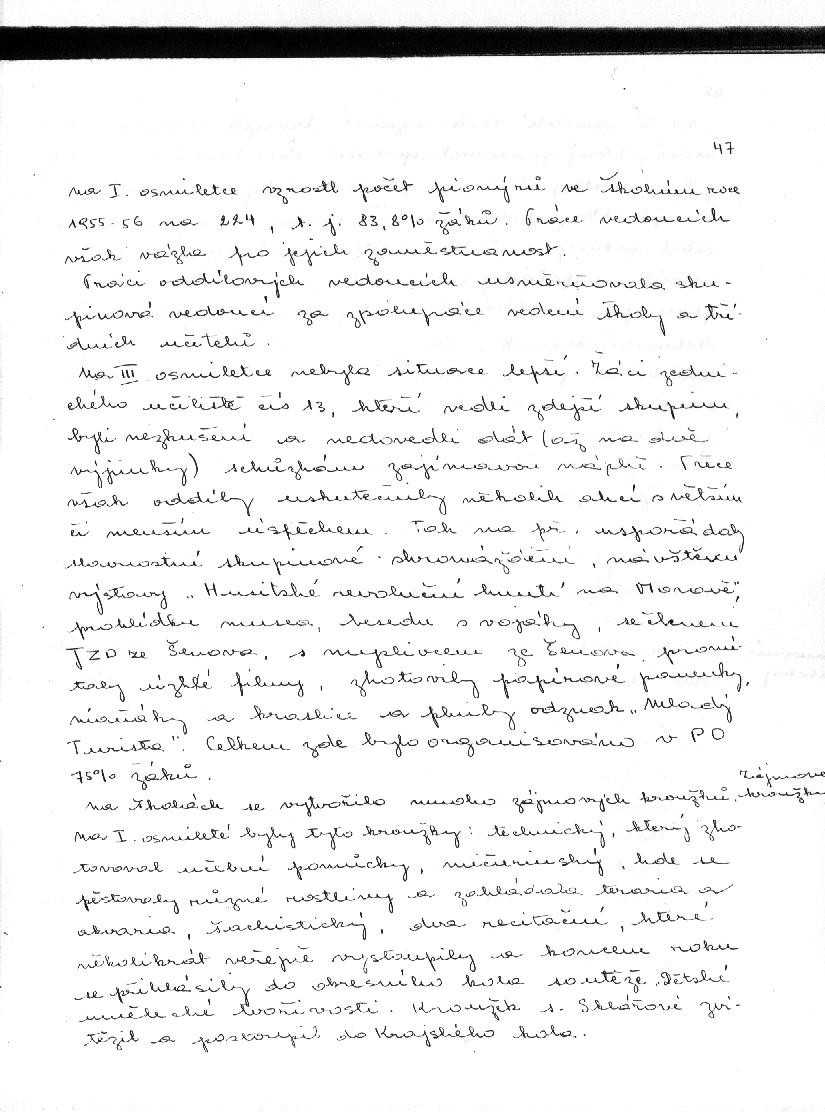 47
na I. osmiletce vzrostl počet pionýrů ve školním roce
1955-56 na 224, t. j. 83,8% žáků. Práce vedoucích
však vázla pro jejich zaměstnanost.
Práci oddílových vedoucích usměrňovala sku-
pinová vedoucí za spolupráce vedení školy a tří-
dních učitelů.
Na III osmiletce nebyla situace lepší. Žáci zedni-
ckého učiliště čís 13, kteří vedli zdejší skupinu,
byli nezkušení a nedovedli dát (až na dvě
výjimky) schůzkám zajímavou náplň. Přece
však oddíly uskutečnily několik akcí s větším
či menším úspěchem. Tak na př. uspořádaly
slavnostní skupinové shromáždění, návštěvu
výstavy „Husitské revoluční hnutí na Moravě",
prohlídku musea, besedu s vojáky, se členem
JZD ze Šenova, s myslivcem ze Šenova, promí-
taly úzké filmy, zhotovily papírové panenky,
maňáky a kraslice a plnily odznak „Mladý
Turista". Celkem zde bylo organisováno v PO
75% žáků.
Zájmové
kroužky
Na školách se vytvořilo mnoho zájmových kroužků.
Na I. osmileté byly tyto kroužky: technický, který zho-
tovoval učební pomůcky, mičurinský, kde se
pěstovaly různé rostliny a zakládala teraria a
akvaria, šachistický, dva recitační, které
několikrát veřejně vystoupily a koncem roku
se přihlásily do okresního kola soutěže „Dětské
umělecké tvořivosti. Kroužek s. Sklářové zví-
tězil a postoupil do Krajského kola.